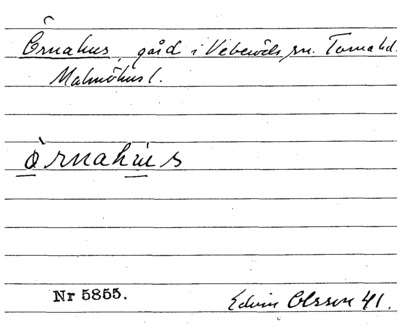 Örnahus, gård i Veberöds sn. Torna hd.
Malmöhus l.
ò̱rnahu̱s
Nr 5855.
Edvin Olsson 41.